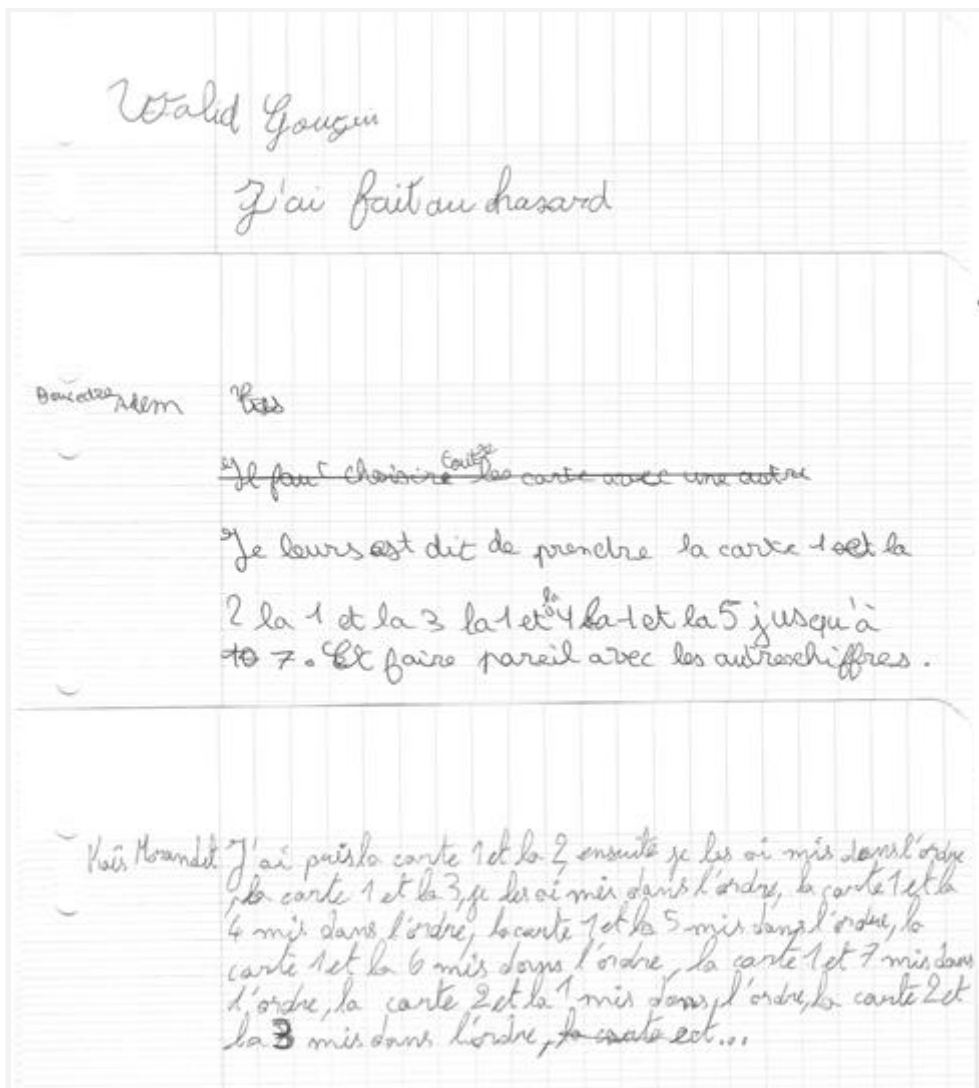 Walid Gougui
J'ai fait au hasard
Adem
Il faut choisire toute les carte avec une autre
Je leurs est dit de prendre la carte 1 et la
2 la 1 et la 3 la 1 et la 4 la 1 et la 5 jusqu'à
10 7. Et faire pareil avec les autres chiffres.
Kaïs Morandet J'ai pris la carte 1 et la 2 ensuite je les ai mis dans l'ordre
, la carte 1 et la 3, je les ai mis dans l'ordre, la carte 1 et la
4 mis dans l'ordre, la carte 1 et la 5 mis dans l'ordre, la
carte 1 et la 6 mis dans l'ordre, la carte 1 et 7 mis dans
l'ordre, la carte 2 et la 1 mis dans l'ordre, la carte 2 et
la 3 mis dans l'ordre, la carte ect...